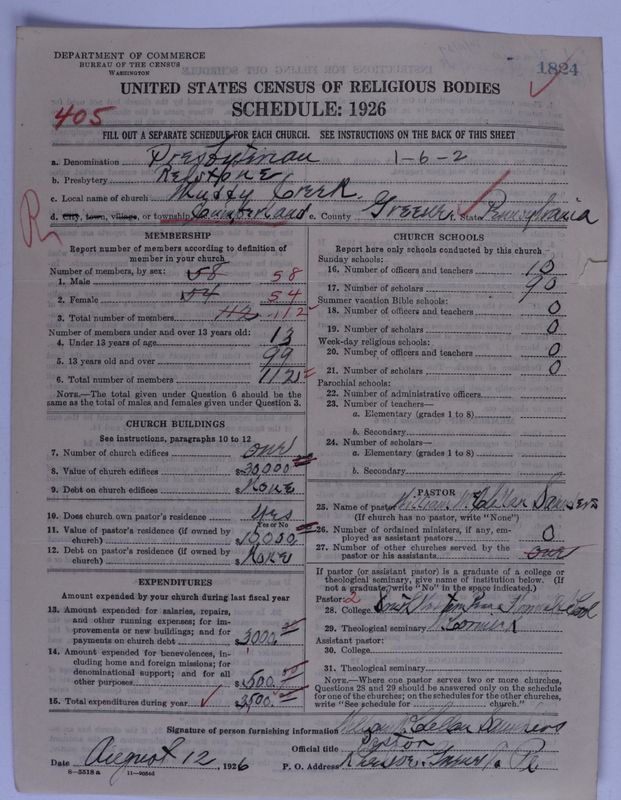 DEPARTMENT OF COMMERCE
BUREAU OF THE CENSUS
WASHINGTON
1824
UNITED STATES CENSUS OF RELIGIOUS BODIES
SCHEDULE: 1926
405
FILL OUT A SEPARATE SCHEDULE FOR EACH CHURCH. SEE INSTRUCTIONS ON THE BACK OF THIS SHEET
a. Denomination Presbyterian 1-6-2
b. Presbytery Redstone
c. Local name of church Muddy Creek
d. City, town, village, or township Cumberland e. County Greene State Pennsylvania
MEMBERSHIP
Report number of members according to definition of
member in your church
Number of members, by sex:
1. Male 58 58
2. Female 54 54
3. Total number of members 112 112
Number of members under and over 13 years old:
4. Under 13 years of age 13
5. 13 years old and over 99
6. Total number of members 112
NOTE.—The total given under Question 6 should be the
same as the total of males and females given under Question 3.
CHURCH BUILDINGS
See instructions, paragraphs 10 to 12
7. Number of church edifices one
8. Value of church edifices $30,000
9. Debt on church edifices $None
10. Does church own pastor's residence? yes
Yes or No
11. Value of pastor's residence (if owned by
church) $10,000
12. Debt on pastor's residence (if owned by
church) $None
EXPENDITURES
Amount expended by your church during last fiscal year
13. Amount expended for salaries, repairs,
and other running expenses; for im-
provements or new buildings; and for
payments on church debt $3000
14. Amount expended for benevolences, in-
cluding home and foreign missions; for
denominational support; and for all
other purposes $500
15. Total expenditures during year $3,500
CHURCH SCHOOLS
Report here only schools conducted by this church
Sunday schools:
16. Number of officers and teachers 10
17. Number of scholars 90
Summer vacation Bible schools:
18. Number of officers and teachers 0
19. Number of scholars 0
Week-day religious schools:
20. Number of officers and teachers 0
21. Number of scholars 0
Parochial schools:
22. Number of administrative officers
23. Number of teachers—
a. Elementary (grades 1 to 8)
b. Secondary
24. Number of scholars—
a. Elementary (grades 1 to 8)
b. Secondary
PASTOR
25. Name of pastor William McClellan Saunders
(If church has no pastor, write "None")
26. Number of ordained ministers, if any, em-
ployed as assistant pastors 0
27. Number of other churches served by the
pastor or his assistants one
If pastor (or assistant pastor) is a graduate of a college or
theological seminary, give name of institution below. (If
not a graduate, write "No" in the space indicated.)
Pastor: 2
28. College
29. Theological seminary
Assistant pastor:
30. College
31. Theological seminary
NOTE.—Where one pastor serves two or more churches,
Questions 28 and 29 should be answered only on the schedule
for one of the churches; on the schedules for the other churches,
write "See schedule for church."
Signature of person furnishing information McClellan Saunders
Official title Pastor
Date August 12, 1926 P. O. Address Pa
8—5518 a 11—9054d